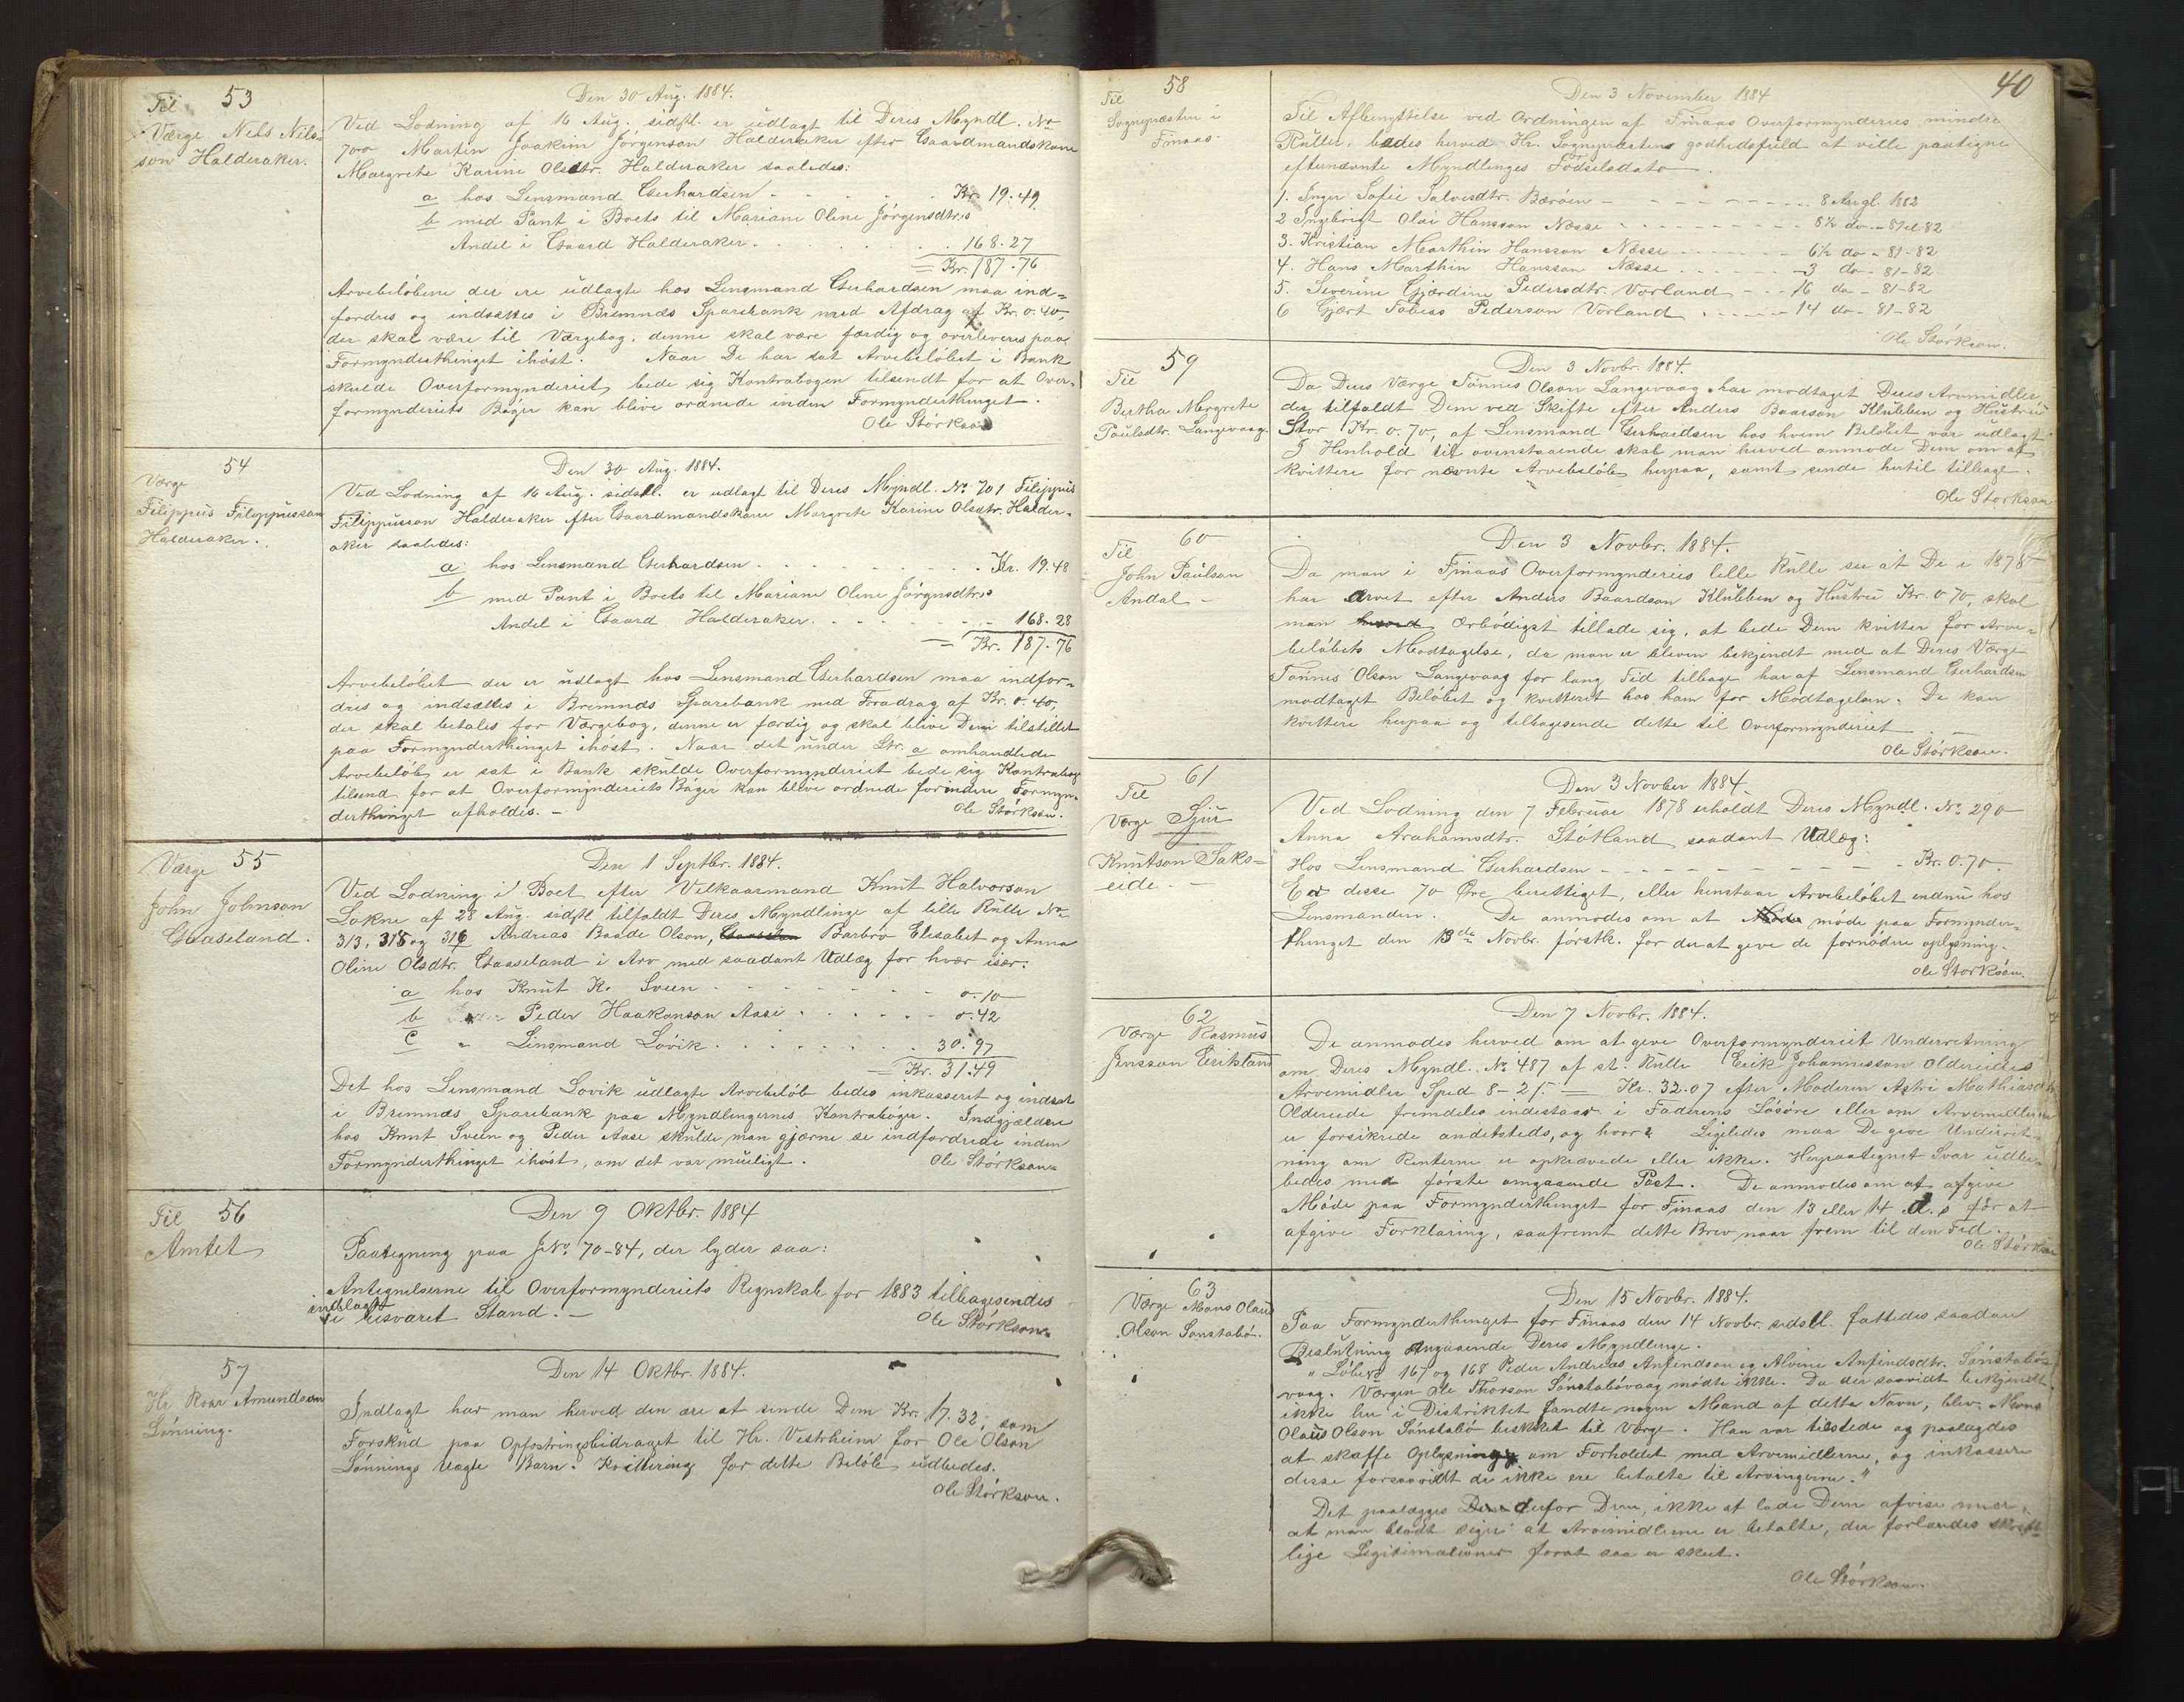 53
Til
Værge Nels Nels-
son Halderaker.
Den 30 Aug. 1884.
Ved Lodning af 16 Aug. sidstl. er udlagt til Deres Myndl. No
700 Martin Joakim Jörgenson Halderaker efter Gaardmandskone
Margrete Karine Olsdtr. Halderaker saaledes:
a hos Lensmand Gerhardsen - Kr. 19.49
b med Pant i Boets til Mariane Oline Jörgensdtrs
Andel i Gaard Halderaker. 168.27
= Kr. 187.76
Arvebelöbene der ere udlagte hos Lensmand Gerhardsen maa ind-
fordres og indsættes i Bremnæs Sparebank med Afdrag af Kr. 0.40,
der skal være til Værgebog, denne skal være færdig og overleveres paa
Formynderthinget ihöst. Naar De har sat Arvebelöbet i Bank
skulde Overformynderiet bede sig Kontrabogen tilsendt for at Over-
formynderiets Böger kan blive ordnede inden Formynderthinget.
Ole Störkson
54
Værge
Filippus Filippusson
Halderaker.
Den 30 Aug. 1884.
Ved Lodning af 16 Aug. sidstl. er udlagt til Deres Myndl. No 701 Filippus
Filippusson Halderaker efter Gaardmandskone Margrete Karine Olsdtr. Halder-
aker saaledes:
a hos Lensmand Gerhardsen Kr. 19.48
b med Pant i Boets til Mariane Oline Jörgensdtrs
Andel i Gaard Halderaker. 168.28
= Kr. 187.76
Arvebelöbet der er udlagt hos Lensmand Gerhardsen maa indfor-
dres og indsættes i Bremnæs Sparebank med Fradrag af Kr. 0.40,
der skal betales for Værgebog, denne er færdig og skal blive Dem tilstillet
paa Formynderthinget ihöst. Naar det under Ltr. a omhandlede
Arvebelöb er sat i Bank skulde Overformynderiet bede sig Kontrabog
tilsend for at Overformynderiets Böger kan blive ordnede forinden Formyn-
derthinget afholdes. -
Ole Störkson.
55
Værge
John Johnson
Gaaseland.
Den 1 Septbr. 1884.
Ved Lodning i Boet efter Velkaarmand Knut Halvorson
Lokne af 28 Aug. sidstl. tilfaldt Deres Myndlinge af lille Rulle No
313, 315 og 316 Andreas Baade Olson, Barbro Elisabet og Anna
Oline Olsdtr. Gaaseland i Arv med saadant Udlæg for hver især:
a hos Knut K. Sveen 0.10
b Peder Haakonson Aase 0.42
c " Lensmand Lövik. 30.97
= Kr. 31.49
Det hos Lensmand Lövik udlagte Arvebelöb bedes inkasseret og indsat
i Bremnæs Sparebank paa Myndlingernes Kontraböger. Indgjælden
hos Knut Sveen og Peder Aase skulde man gjærne se indfordrede inden
Formynderthinget ihöst, om det var muligt.
Ole Störkson
56
Til
Amtet
Den 9 Oktbr. 1884
Paategning paa JNo. 70-84, der lyder saa:
Antegnelserne til Overformynderiets Regnskab for 1883 tilbagesendes
indlagt
i besvaret Stand. -
Ole Störkson
57
Hr Roar Amundson
Lönning.
Den 14 Oktbr. 1884.
Indlagt har man herved den ære at sende Dem Kr. 17.32, som
Forskud paa Opfostringsbidraget til Hr. Vestrheim for Ole Olson
Lönnings Uægte Barn. Kvittering for dette Belöb udbedes.
Ole Störkson.
40
58
Til
Sognepræsten i
Finaas
Den 3 November 1884
Til Afbenyttelse ved Ordningen af Finaas Overformynderies mindre
Ruller, bedes herved Hr. Sognepræsten godhedsfuld at ville paategne
efternævnte Myndlinges Födselsdato.
1. Inger Sofie Salvesdtr. Bæröen - 8 Augl. 1882
2 Ingebrigt Olai Hansson Næsse 8½ do - 81 el. 82
3. Kristian Marthin Hansson Næsse 6½ do - 81-82
4. Hans Marthin Hansson Næsse 3 do - 81-82
5. Severine Gjærdine Pedersdtr. Vorland 16 do - 81-82
6 Gjært Tobias Pederson Vorland 14 do - 81-82
Ole Störkson.
59
Til
Bertha Mergrete
Paulsdtr. Langevaag.
Den 3 Novbr. 1884.
Da Deres Værge Tönnes Olson Langevaag har modtaget Deres Arvemidler
der tilfaldt Dem ved Skifte efter Anders Baarson Klubben og Hustru
Stor Kr. 0.70, af Lensmand Gerhardsen hos hvem Belöbet var udlagt
I Henhold til ovenstaaende skal man herved anmode Dem om at
kvittere for nævnte Arvebelöb herpaa, samt sende hertil tilbage.
Ole Störkson
60
Til
John Paulson
Andal -
Den 3 Novbr. 1884.
Da man i Finaas Overformynderies lille Rulle ser at De i 1878
har arvet efter Anders Baardson Klubben og Hustru Kr. 0.70, skal
man ærbödigst tillade sig, at bede Dem kvitter for Arve-
belöbets Modtagelse, da man er bleven bekjendt med at Deres Værge
Tönnes Olson Langevaag for lang Tid tilbage har af Lensmand Gerhardsen
modtaget Belöbet og kvitteret hos ham for Modtagelsen. De kan
kvittere herpaa og tilbagesende dette til Overformynderiet
Ole Störkson.
61
Til
Værge Sjur
Knutson Saks-
eide. -
Den 3 Novber 1884.
Ved Lodning den 7 Februar 1878 erholdt Deres Myndl. No. 290
Anna Arahamsdtr. Stötland saadant Udlæg:
Hos Lensmand Gerhardsen Kr. 0.70
Er disse 70 Öre berettiget, eller henstaar Arvebelöbet endnu hos
Lensmanden. De anmodes om at möde paa Formynder-
thinget den 13de Novbr. förstk. for der at give de fornödne oplysning.
Ole Störkson.
62
Værge Rasmus
Jensson Eirikland
Den 7 Novbr. 1884.
De anmodes herved om at give Overformynderiet Underretning
om Deres Myndl. No. 487 af st. Rulle Erik Johannesson Oldereides
Arvemidler Spd 8-2 = Kr. 32.07 efter Moderen Astri Mathiasd
Oldereide fremdeles indestaar i Faderens Lösöre eller om Arvemidlerne
er forsikrede andetsteds, og hvor? Ligeledes maa De give Underret-
ning om Renterne er opkrævede eller ikke. Herpaategnet Svar udbe-
bedes med förste omgaaende Post. De anmodes om at afgive
Möde paa Formynderthinget for Finaas den 13 eller 14 d. s for at
afgive Forklaring, saafremt dette Brev naar frem til den Tid.
Ole Störkson
63
Værge Mons Olaus
Olson Sönstabö.
Den 15 Novbr. 1884.
Paa Formynderthinget for Finaas den 14 Novbr. sidstl. fattedes saadan
Beslutning angaaende Deres Myndlinge.
" Löben 167 og 168 Peder Andreas Anfindson og Alvine Anfindsdtr. Sönstabö-
vaag. Værgen Ole Thorson Sönstabövaag mödte ikke. Da der saavidt bekjendt
ikke her i Distriktet fandtes nogen Mand af dette Navn, blev Mons
Olaus Olson Sönstabö beskikket til Værge. Han var tilstede og paalagdes
at skaffe Oplysning om Forholdet med Arvemidlerne, og inkassere
disse forsaavidt de ikke ere betalte til Arvingerne."
Det paalægges derfor Dem, ikke at lade Dem afvise med
at man blodt siger at Arvemidlerne er betalte, der forlandes skrift-
lige Legitimationer forat saa er skeet.
Ole Störkson